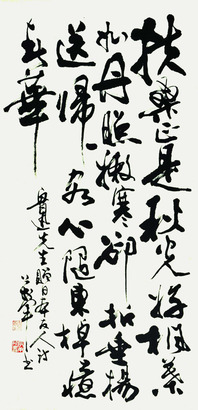 扶桑正是秋光好楓葉
如丹照嫩寒卻折垂楊
送歸客心隨東棹憶
年華
魯迅先生贈日本友人詩
書